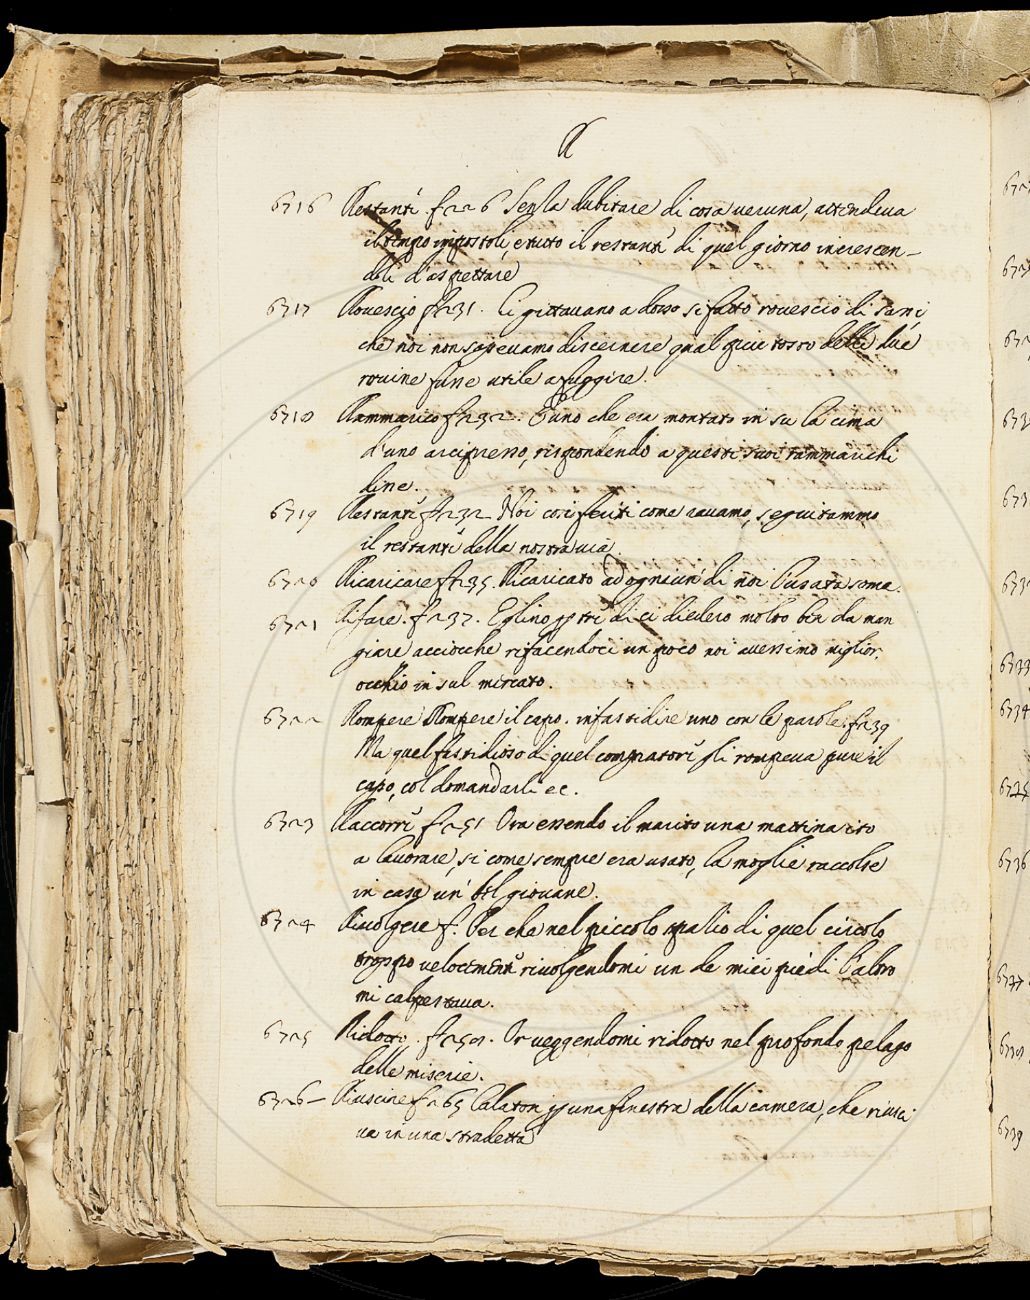 R
6716 Restanti f 226 Senza dubitare di cosa veruna, attendeva
il tempo impostoli, e tutto il restanti di quel giorno increscen-
doli d'aspettare
6717 Rovescio f 231. Ci gittavano a dosso sì fatto rovescio di sassi
che noi non sapevamo discernere qual piu tosto delle due
rovine fusse utile a fuggire.
6718 Rammarico f 232. E uno che era montato in su la cima
d'uno arcipresso, rispondendo a questi suoi rammarichi
disse.
6719 Restanti f 232 Noi così feriti come savamo, seguitammo
il restanti della nostra via.
6720 Ricaricare f 235. Ricaricato ad ogniun di noi l'usata soma.
6721 Rifare. f 237. Eglino ci diedero molto ben da man
giare acciocche rifacendoci un poco noi avessimo miglior
occhio in sul mercato.
6722 Rompere Rompere il capo. infastidire uno con le parole. f 239
Ma quel fastidioso di quel compratori gli rompeva pure il
capo, col domandarli ec.
6723 Raccorri f 251 Ora essendo il marito una mattina ito
a lavorare, si come sempre era usato, la moglie raccolse
in casa un' bel giovane.
6724 Rivolgere f. Per che nel piccolo spalio di quel circolo
troppo velocementi rivolgendomi un de miei piedi l'altro
mi calpestava.
6725 Ridotto. f 258. Or veggendomi ridotto nel profondo pelago
delle miserie.
6726 - Riuscire f 265 Calaton una finestra della camera, che riusci
va in una stradetta
6734
6735
6736
6737
6738
6739